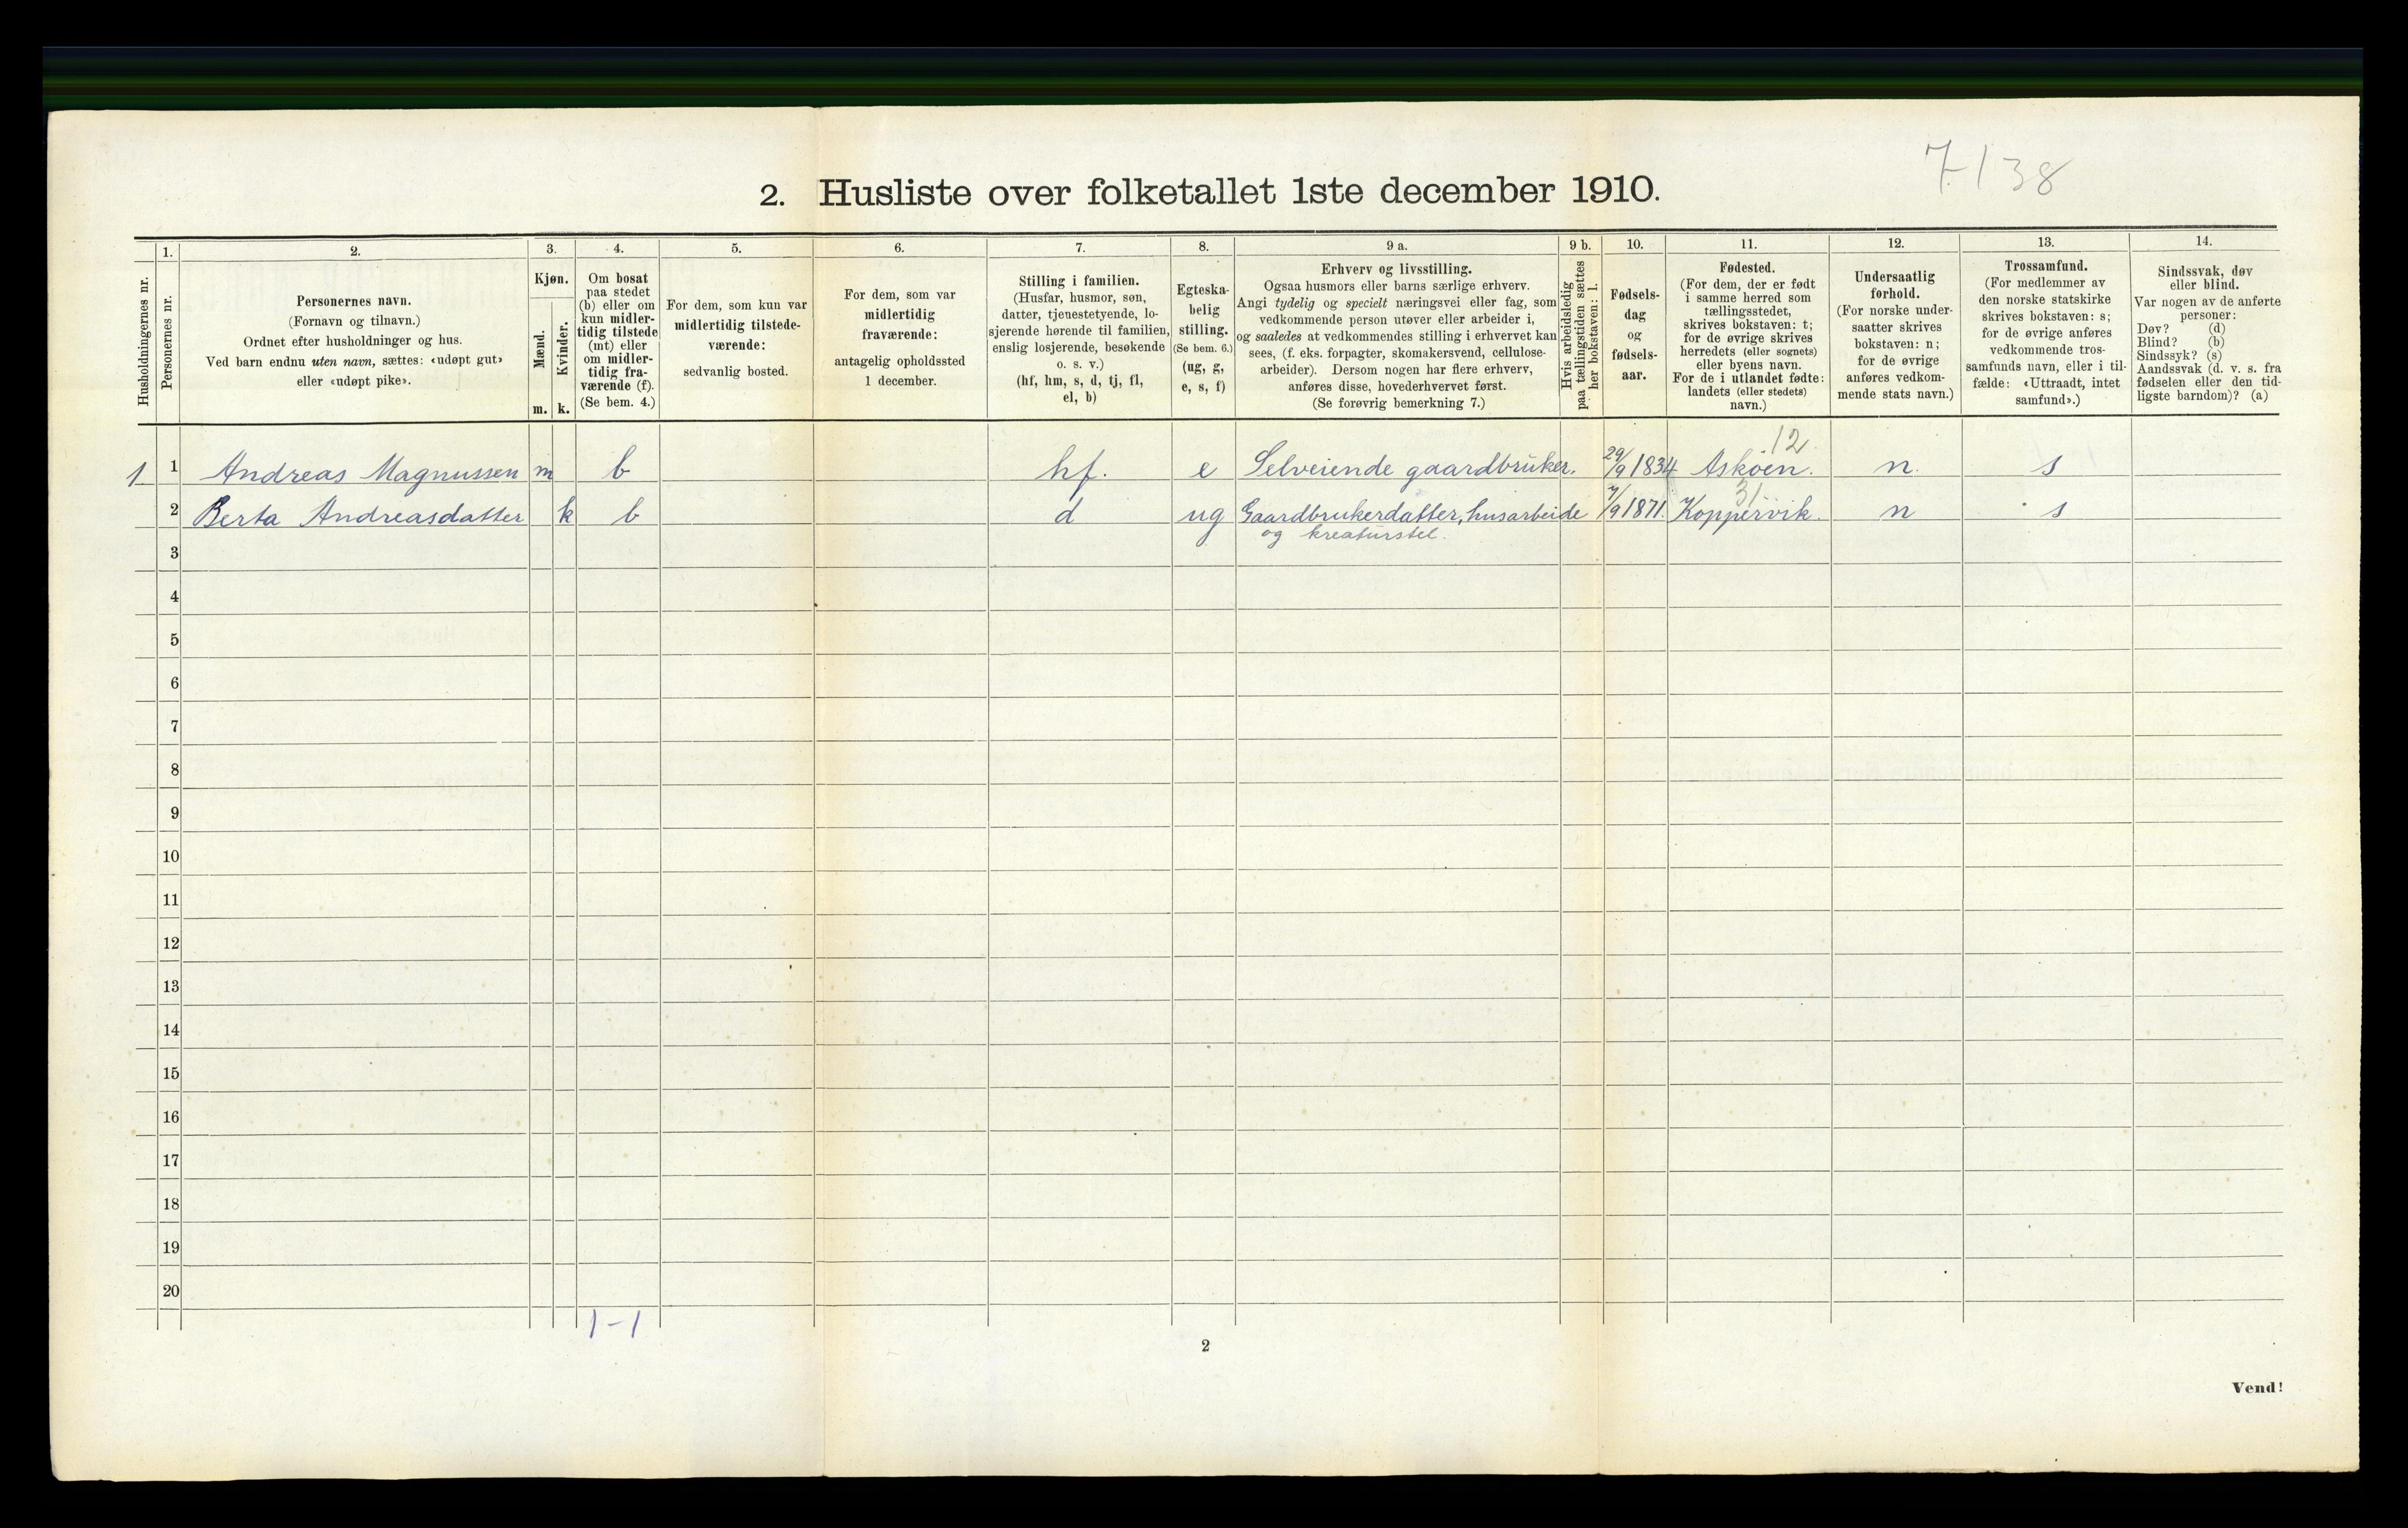 7138
2. Husliste over folketallet 1ste december 1910.
Husholdningernes nr.
1.
Personernes nr.
2.
Personernes navn.
(Fornavn og tilnavn.)
Ordnet efter husholdninger og hus.
Ved barn endnu uten navn, sættes: «udøpt gut»
eller «udøpt pike».
3.
Kjøn.
Mænd.
Kvinder.
m. k.
4.
Om bosat
paa stedet
(b) eller om
kun midler-
tidig tilstede
(mt) eller
om midler-
tidig fra-
værende (f).
(Se bem. 4.)
5.
For dem, som kun var
midlertidig tilstede-
værende:
sedvanlig bosted.
6.
For dem, som var
midlertidig
fraværende:
antagelig opholdssted
1 december.
7.
Stilling i familien.
(Husfar, husmor, søn,
datter, tjenestetyende, lo-
sjerende hørende til familien,
enslig losjerende, besøkende
o. s. v.)
(hf, hm, s, d, tj, fl,
el, b)
8.
Egteska-
belig
stilling.
(Se bem. 6.)
(ug, g,
e, s, f)
9 a.
Erhverv og livsstilling.
Ogsaa husmors eller barns særlige erhverv.
Angi tydelig og specielt næringsvei eller fag, som
vedkommende person utøver eller arbeider i,
og saaledes at vedkommendes stilling i erhvervet kan
sees, (f. eks. forpagter, skomakersvend, cellulose-
arbeider). Dersom nogen har flere erhverv,
anføres disse, hovederhvervet først.
(Se forøvrig bemerkning 7.)
9 b.
Hvis arbeidsledig
paa tællingstiden sættes
her bokstaven: l.
10.
Fødsels-
dag
og
fødsels-
aar.
11.
Fødested.
(For dem, der er født
i samme herred som
tællingsstedet,
skrives bokstaven: t;
for de øvrige skrives
herredets (eller sognets)
eller byens navn.
For de i utlandet fødte:
landets (eller stedets)
navn.)
12.
Undersaatlig
forhold.
(For norske under-
saatter skrives
bokstaven: n;
for de øvrige
anføres vedkom-
mende stats navn.)
13.
Trossamfund.
(For medlemmer av
den norske statskirke
skrives bokstaven: s;
for de øvrige anføres
vedkommende tros-
samfunds navn, eller i til-
fælde: «Uttraadt, intet
samfund».)
14.
Sindssvak, døv
eller blind.
Var nogen av de anførte
personer:
Døv? (d)
Blind? (b)
Sindssyk? (s)
Aandssvak (d. v. s. fra
fødselen eller den tid-
ligste barndom)? (a)
12
1 1 Andreas Magnussen m b hf. e Selveiende gaardbruker. 29/9 1834 Askøen. n. s
31
2 Berta Andreasdatter k b d ug Gaardbrukerdatter, husarbeide 7/9 1871. Koppervik. n s
og kreaturstel.
3
4
5
6
7
8
9
10
11
12
13
14
15
16
17
18
19
20
1-1
2
Vend!